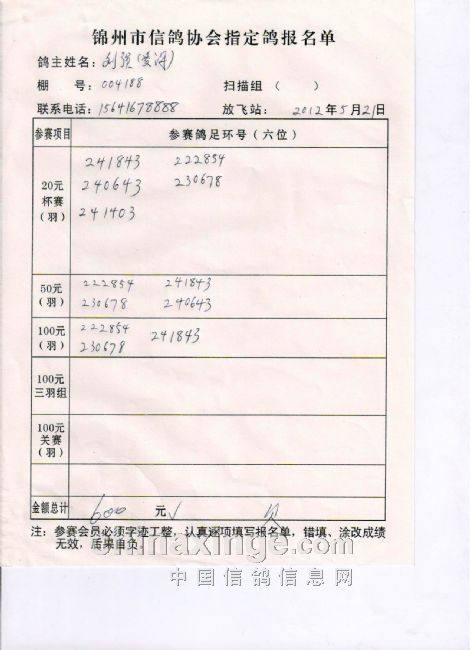 锦州市信鸽协会指定鸽报名单
鸽主姓名：刘强(爱涛)
棚 号：004188 扫描组（ ）
联系电话：15641678888 放飞站： 2012年5月21日
参赛项目 参赛鸽足环号（六位）
20元
杯赛
（羽）
241843 222854
240643 230678
241403
50元
（羽）
222854 241843
230678 240643
100元
（羽）
222854 241843
230678
100元
三羽组
100元
关赛
（羽）
金额总计 600 元√
注：参赛会员必须字迹工整，认真逐项填写报名单，错填、涂改成绩
无效，后果自负。
chinaxinge.com
中国信鸽信息网